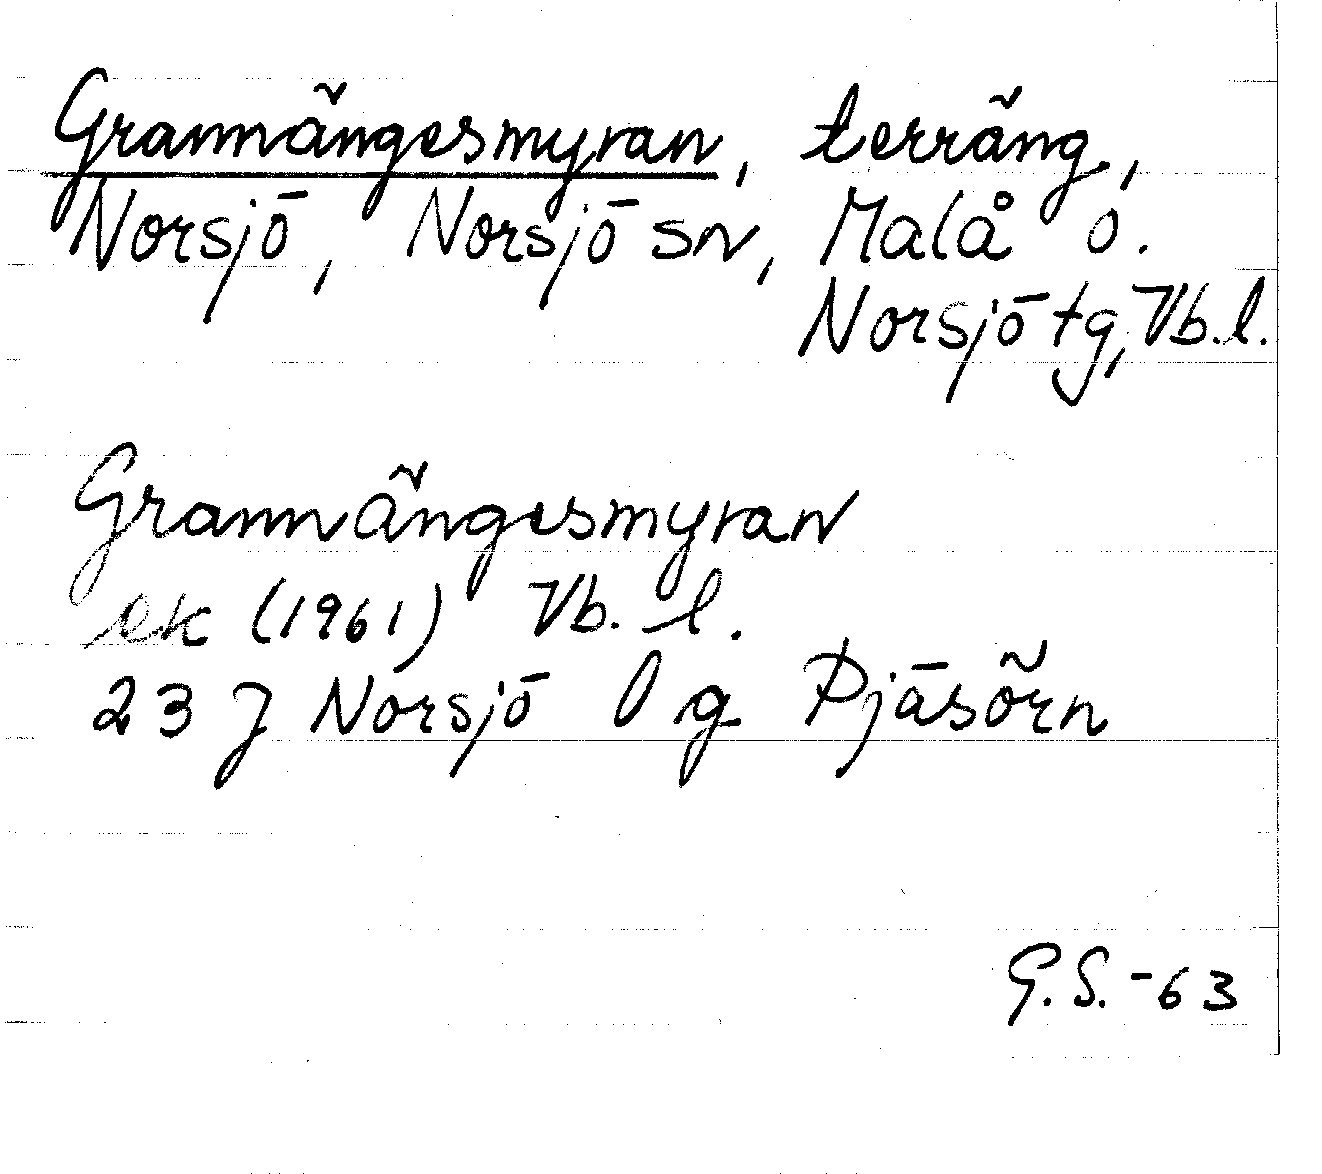 Grannängesmyran, terräng,
Norsjö, Norsjö sn, Malå o.
Norsjö tg, Vb.l.
Grannängesmyran
ek (1961) Vb. l.
23 J Norsjö l g Pjäsörn
G.S.-63